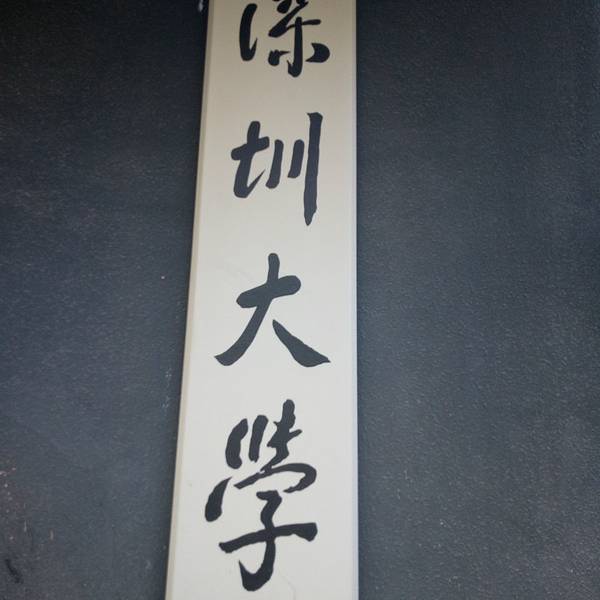 深圳大學